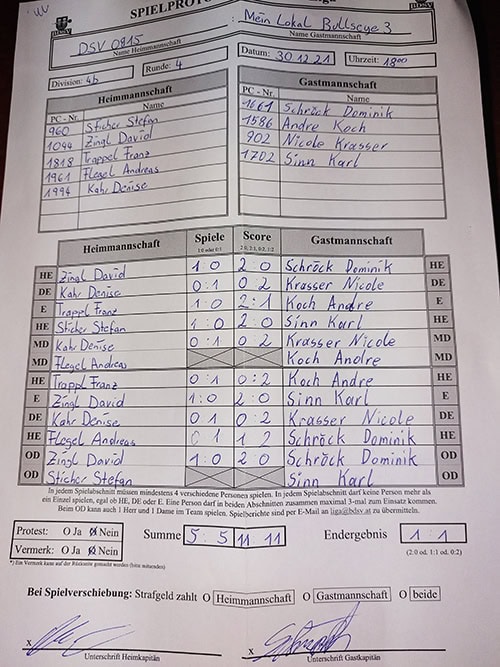 SPIELPROTO
BDSV
DSV 0815
Name Heimmannschaft
: Mein Lokal Bullseye 3
Name Gastmannschaft
Division: 4b
Runde: 4
Datum: 30.12.21
Uhrzeit: 18:00
Heimmannschaft
PC - Nr. Name
960 Sticher Stefan
1044 Zingl David
1818 Trappel Franz
1961 Flegel Andreas
1994 Kahr Denise
Gastmannschaft
PC - Nr. Name
1661 Schröck Dominik
1586 Andre Koch
902 Nicole Krasser
1702 Sinn Karl
Heimmannschaft Spiele 1:0 oder 0:1 Score 2:0, 2:1, 0:2, 1:2 Gastmannschaft
HE Zingl David 1 0 2 0 Schröck Dominik HE
DE Kahr Denise 0:1 0 2 Krasser Nicole DE
E Trappl Franz 1:0 2:1 Koch Andre E
HE Sticher Stefan 1:0 2:0 Sinn Karl HE
MD Kahr Denise 0:1 0 2 Krasser Nicole MD
MD Flegel Andreas Koch Andre MD
HE Trappl Franz 0:1 0:2 Koch Andre HE
E Zingl David 1:0 2:0 Sinn Karl E
DE Kahr Denise 0 1 0:2 Krasser Nicole DE
HE Flegel Andreas 0 1 1 2 Schröck Dominik HE
OD Zingl David 1:0 2 0 Schröck Dominik OD
OD Sticher Stefan Sinn Karl OD
In jedem Spielabschnitt müssen mindestens 4 verschiedene Personen spielen. In jedem Spielabschnitt darf keine Person mehr als
ein Einzel spielen, egal ob HE, DE oder E. Eine Person darf in beiden Abschnitten zusammen maximal 3-mal zum Einsatz kommen.
Beim OD kann auch 1 Herr und 1 Dame im Team spielen. Spielberichte sind per E-Mail an liga@bdsv.at zu übermitteln.
Protest: O Ja O Nein
Vermerk: O Ja O Nein
Summe 5:5 11:11
Endergebnis 1:1
(2:0 od. 1:1 od. 0:2)
*) Ein Vermerk kann auf der Rückseite gemacht werden (bitte mitsenden)
Bei Spielverschiebung: Strafgeld zahlt O Heimmannschaft O Gastmannschaft O beide
x x
Unterschrift Heimkapitän Unterschrift Gastkapitän